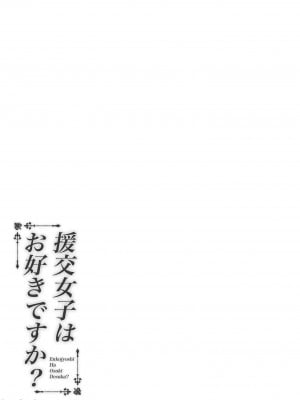 援交女子は
お好きですか?
Enkojyoshi
Ha
Osuki
Desuka?